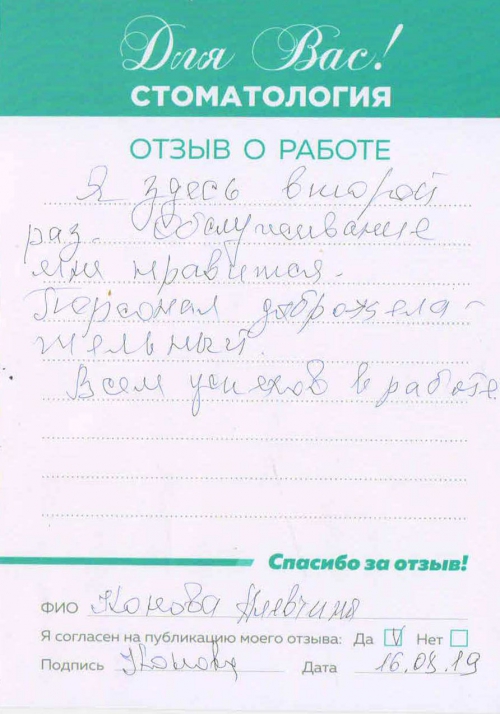 Для Вас!
СТОМАТОЛОГИЯ
ОТЗЫВ О РАБОТЕ
Я здесь второй
раз. Обслуживание
мне нравится.
Персонал доброжела-
тельный.
Всем успехов в работе
Спасибо за отзыв!
ФИО Конова Алевтина
Я согласен на публикацию моего отзыва: Да V Нет
Подпись Конова Дата 16.03.19